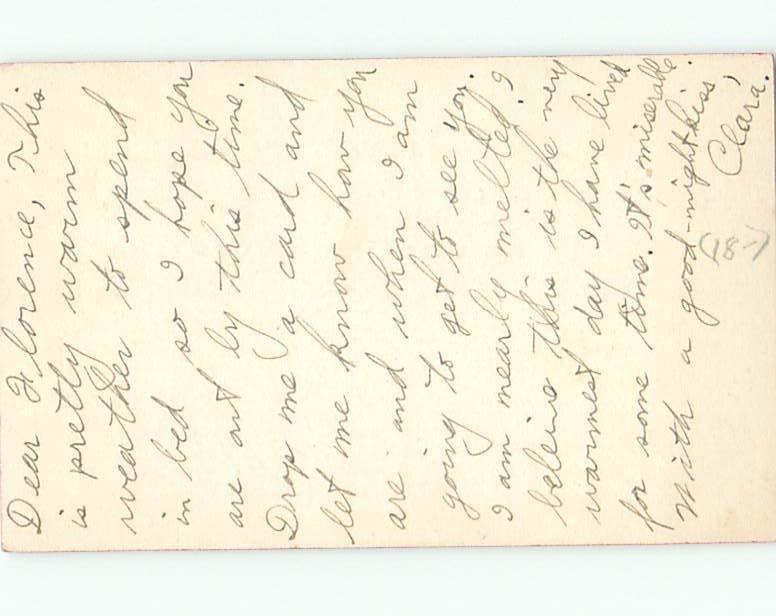 Dear Florence, This
is pretty warm
weather to spend
in bed so I hope you
are out by this time.
Drop me a card and
let me know how you
are and when I am
going to get to see you.
I am nearly melted. I
beleive this is the very
warmest day I have lived
for some time. It's miserable.
With a good-night kiss,
Clara.
(18-)